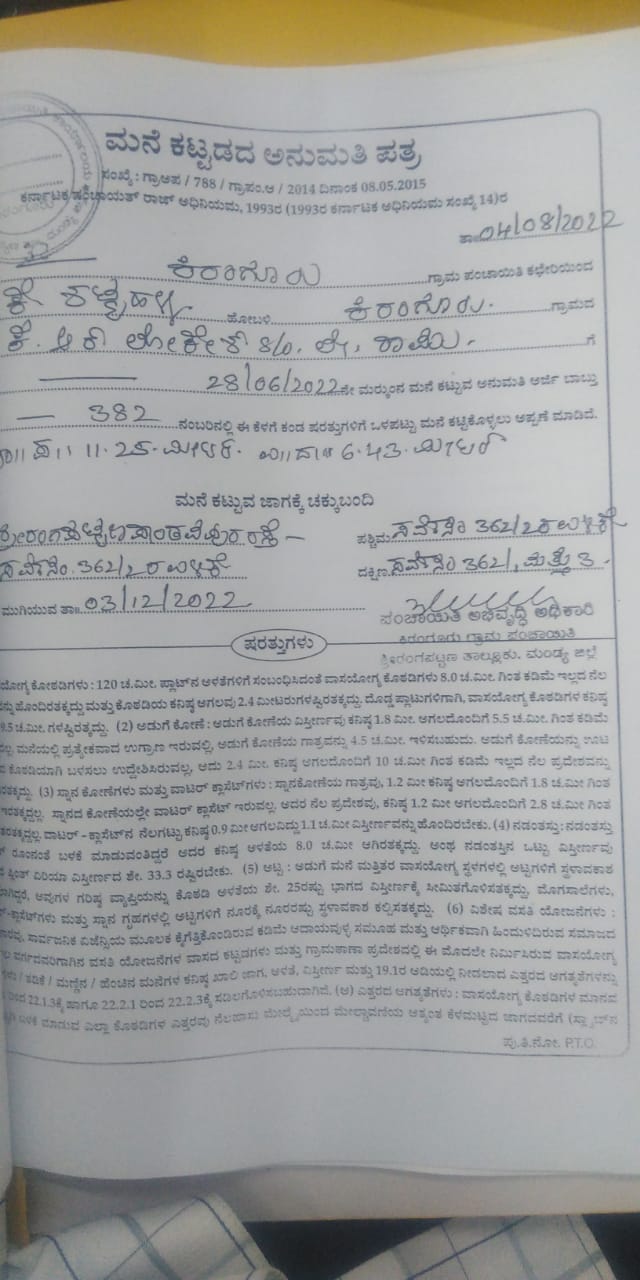 ಮನೆ ಕಟ್ಟಡದ ಅನುಮತಿ ಪತ್ರ
ಸಂಖ್ಯೆ : ಗ್ರಾಅಪ / 788 / ಗ್ರಾಪಂ.ಆ / 2014 ದಿನಾಂಕ 08.05.2015
ಕರ್ನಾಟಕ ಪಂಚಾಯತ್ ರಾಜ್ ಅಧಿನಿಯಮ, 1993ರ (1993ರ ಕರ್ನಾಟಕ ಅಧಿನಿಯಮ ಸಂಖ್ಯೆ 14)ರ
ತಾ 04/08/2022
ಕಿರಂಗೂರು ಗ್ರಾಮ ಪಂಚಾಯಿತಿ ಕಛೇರಿಯಿಂದ
ಹೋಬಳಿ ಕಿರಂಗೂರು. ಗ್ರಾಮದ
ಕೆ. ಆರ್ ಲೋಕೇಶ್ S/o. ಲೇ, ರಾಮು. ಗೆ
28/06/2022ನೇ ಮರ್‍ಕುಂನ ಮನೆ ಕಟ್ಟುವ ಅನುಮತಿ ಅರ್ಜಿ ಬಾಬ್ತು
— 382 ನಂಬರಿನಲ್ಲಿ ಈ ಕೆಳಗೆ ಕಂಡ ಷರತ್ತುಗಳಿಗೆ ಒಳಪಟ್ಟು ಮನೆ ಕಟ್ಟಿಕೊಳ್ಳಲು ಅಪ್ಪಣೆ ಮಾಡಿದೆ.
11.25. ಮೀಟರ್. 6.43. ಮೀಟರ್
ಮನೆ ಕಟ್ಟುವ ಜಾಗಕ್ಕೆ ಚಕ್ಕುಬಂದಿ
ರಸ್ತೆ – ಪಶ್ಚಿಮ ಸರ್ವೆನಂ 362/2
ಸರ್ವೆನಂ. 362/2 ದಕ್ಷಿಣ ಸರ್ವೆನಂ 362/1, ಮತ್ತು 3.
ಮುಗಿಯುವ ತಾ 03/12/2022
ಪಂಚಾಯಿತಿ ಅಭಿವೃದ್ಧಿ ಅಧಿಕಾರಿ
ಕಿರಂಗೂರು ಗ್ರಾಮ ಪಂಚಾಯಿತಿ
ಶ್ರೀರಂಗಪಟ್ಟಣ ತಾಲ್ಲೂಕು. ಮಂಡ್ಯ ಜಿಲ್ಲೆ
ಷರತ್ತುಗಳು
ಯೋಗ್ಯ ಕೋಠಡಿಗಳು : 120 ಚ.ಮೀ. ಪ್ಲಾಟ್‌ನ ಅಳತೆಗಳಿಗೆ ಸಂಬಂಧಿಸಿದಂತೆ ವಾಸಯೋಗ್ಯ ಕೊಠಡಿಗಳು 8.0 ಚ.ಮೀ. ಗಿಂತ ಕಡಿಮೆ ಇಲ್ಲದ ನೆಲ
ಹೊಂದಿರತಕ್ಕದ್ದು ಮತ್ತು ಕೊಠಡಿಯ ಕನಿಷ್ಠ ಅಗಲವು 2.4 ಮೀಟರುಗಳಷ್ಟಿರತಕ್ಕದ್ದು. ದೊಡ್ಡ ಪ್ಲಾಟುಗಳಿಗಾಗಿ, ವಾಸಯೋಗ್ಯ ಕೊಠಡಿಗಳ ಕನಿಷ್ಠ
9.5 ಚ.ಮೀ. ಗಳಷ್ಟಿರತ್ಕದ್ದು. (2) ಅಡುಗೆ ಕೋಣೆ : ಅಡುಗೆ ಕೋಣೆಯ ವಿಸ್ತೀರ್ಣವು ಕನಿಷ್ಠ 1.8 ಮೀ. ಅಗಲದೊಂದಿಗೆ 5.5 ಚ.ಮೀ. ಗಿಂತ ಕಡಿಮೆ
ಮನೆಯಲ್ಲಿ ಪ್ರತ್ಯೇಕವಾದ ಉಗ್ರಾಣ ಇರುವಲ್ಲಿ, ಅಡುಗೆ ಕೋಣೆಯ ಗಾತ್ರವನ್ನು 4.5 ಚ.ಮೀ. ಇಳಿಸಬಹುದು. ಅಡುಗೆ ಕೋಣೆಯನ್ನು ಊಟ
ಕೊಠಡಿಯಾಗಿ ಬಳಸಲು ಉದ್ದೇಶಿಸಿರುವಲ್ಲಿ, ಅದು 2.4 ಮೀ. ಕನಿಷ್ಠ ಅಗಲದೊಂದಿಗೆ 10 ಚ.ಮೀ ಗಿಂತ ಕಡಿಮೆ ಇಲ್ಲದ ನೆಲ ಪ್ರದೇಶವನ್ನು
(3) ಸ್ನಾನ ಕೋಣೆಗಳು ಮತ್ತು ವಾಟರ್ ಕ್ಲಾಸೆಟ್‌ಗಳು : ಸ್ನಾನಕೋಣೆಯ ಗಾತ್ರವು, 1.2 ಮೀ ಕನಿಷ್ಠ ಅಗಲದೊಂದಿಗೆ 1.8 ಚ.ಮೀ ಗಿಂತ
ಸ್ನಾನದ ಕೋಣೆಯಲ್ಲೇ ವಾಟರ್ ಕ್ಲಾಸೆಟ್ ಇರುವಲ್ಲಿ. ಅದರ ನೆಲ ಪ್ರದೇಶವು, ಕನಿಷ್ಠ 1.2 ಮೀ ಅಗಲದೊಂದಿಗೆ 2.8 ಚ.ಮೀ ಗಿಂತ
ವಾಟರ್ - ಕ್ಲಾಸೆಟ್‌ನ ನೆಲಗಟ್ಟು ಕನಿಷ್ಠ 0.9 ಮೀ ಅಗಲವಿದ್ದು 1.1 ಚ.ಮೀ ವಿಸ್ತೀರ್ಣವನ್ನು ಹೊಂದಿರಬೇಕು. (4) ನಡಂತಸ್ತು : ನಡಂತಸ್ತು
ರೂಂನಂತೆ ಬಳಕೆ ಮಾಡುವಂತಿದ್ದರೆ ಅದರ ಕನಿಷ್ಠ ಅಳತೆಯ 8.0 ಚ.ಮೀ ಆಗಿರತಕ್ಕದ್ದು. ಅಂಥ ನಡಂತಸ್ತಿನ ಒಟ್ಟು ವಿಸ್ತೀರ್ಣವು
ಪ್ಲಿಂತ್ ಏರಿಯಾ ವಿಸ್ತೀರ್ಣದ ಶೇ. 33.3 ರಷ್ಟಿರಬೇಕು. (5) ಅಟ್ಟ : ಅಡುಗೆ ಮನೆ ಮತ್ತಿತರ ವಾಸಯೋಗ್ಯ ಸ್ಥಳಗಳಲ್ಲಿ ಅಟ್ಟಗಳಿಗೆ ಸ್ಥಳಾವಕಾಶ
ಅವುಗಳ ಗರಿಷ್ಠ ವ್ಯಾಪ್ತಿಯನ್ನು ಕೊಠಡಿ ಅಳತೆಯ ಶೇ. 25ರಷ್ಟು ಭಾಗದ ವಿಸ್ತೀರ್ಣಕ್ಕೆ ಸೀಮಿತಗೊಳಿಸತಕ್ಕದ್ದು, ಮೊಗಸಾಲೆಗಳು,
ಮತ್ತು ಸ್ನಾನ ಗೃಹಗಳಲ್ಲಿ ಅಟ್ಟಗಳಿಗೆ ನೂರಕ್ಕೆ ನೂರರಷ್ಟು ಸ್ಥಳಾವಕಾಶ ಕಲ್ಪಿಸತಕ್ಕದ್ದು. (6) ವಿಶೇಷ ವಸತಿ ಯೋಜನೆಗಳು :
ಸಾರ್ವಜನಿಕ ಏಜೆನ್ಸಿಯ ಮೂಲಕ ಕೈಗೆತ್ತಿಕೊಂಡಿರುವ ಕಡಿಮೆ ಆದಾಯವುಳ್ಳ ಸಮೂಹ ಮತ್ತು ಆರ್ಥಿಕವಾಗಿ ಹಿಂದುಳಿದಿರುವ ಸಮಾಜದ
ವಸತಿ ಯೋಜನೆಗಳ ವಾಸದ ಕಟ್ಟಡಗಳು ಮತ್ತು ಗ್ರಾಮಠಾಣಾ ಪ್ರದೇಶದಲ್ಲಿ ಈ ಮೊದಲೇ ನಿರ್ಮಿಸಿರುವ ವಾಸಯೋಗ್ಯ
/ ಮಣ್ಣಿನ / ಹೆಂಚಿನ ಮನೆಗಳ ಕನಿಷ್ಠ ಖಾಲಿ ಜಾಗ, ಅಳತೆ, ವಿಸ್ತೀರ್ಣ ಮತ್ತು 19.1ರ ಅಡಿಯಲ್ಲಿ ನೀಡಲಾದ ಎತ್ತರದ ಅಗತ್ಯತೆಗಳನ್ನು
22.1.3ಕ್ಕೆ ಹಾಗೂ 22.2.1 ರಿಂದ 22.2.3ಕ್ಕೆ ಸಡಿಲಗೊಳಿಸಬಹುದಾಗಿದೆ. (ಅ) ಎತ್ತರದ ಅಗತ್ಯತೆಗಳು : ವಾಸಯೋಗ್ಯ ಕೊಠಡಿಗಳ ಮಾನವ
ಬಳಕೆ ಮಾಡುವ ಎಲ್ಲಾ ಕೊಠಡಿಗಳ ಎತ್ತರವು ನೆಲಹಾಸು ಮೇಲ್ಮೈಯಿಂದ ಮೇಲ್ಚಾವಣಿಯ ಅತ್ಯಂತ ಕೆಳಮಟ್ಟದ ಜಾಗದವರೆಗೆ (ಸ್ಲ್ಯಾಬ್‌ನ
ಪು.ತಿ.ನೋ. P.T.O.